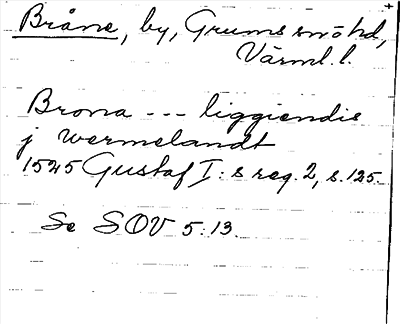 Bråne, by, Grums sn o hd,
Värml. l.
Brona --- liggiendis
j wermelandt
1525 Gustaf I:s reg. 2, s. 125.
Se SOV 5:13.